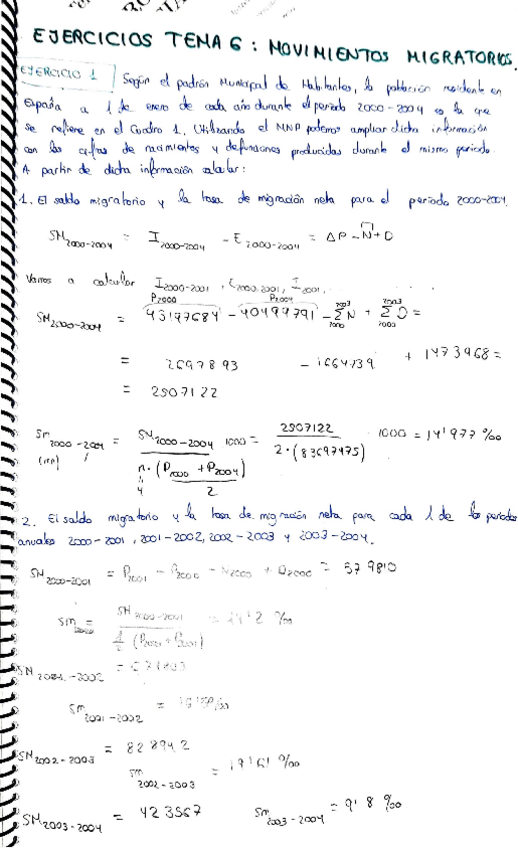 EJERCICIOS TEMA 6: MOVIMIENTOS MIGRATORIOS.
EJERCICIO 1 Según el padrón Municipal de Habitantes, la población residente en
España a 1 de enero de cada año durante el período 2000-2004 es la que
se refiere en el Cuadro 1. Utilizando el MNP podemos ampliar dicha información
con las cifras de nacimientos y defunciones producidas durante el mismo periodo.
A partir de dicha información calcular:
1. El saldo migratorio y la tasa de migración neta para el período 2000-2004.
SM2000-2004 = I2000-2004 - E2000-2004 = ΔP - N + D
Vamos a calcular I2000-2001, E2000-2001, I2001, ...
P2000 P2004
SM2000-2004 = 43197684 - 40499791 - Σ N + Σ D =
= 2697893 - 1664739 + 1473968 =
= 2507122
sm2000-2004 = SM2000-2004 / n·(P2000 + P2004)/2 1000 = 2507122 / 2·(83697475) 1000 = 14'977 ‰
2. El saldo migratorio y la tasa de migración neta para cada 1 de los periodos
anuales 2000-2001, 2001-2002, 2002-2003 y 2003-2004.
SM2000-2001 = P2001 - P2000 - N2000 + D2000 = 579810
sm = SM2000-2001 / 1/2 (P2000 + P2001) = ‰
SM2001-2002 =
sm2001-2002 = ‰
SM2002-2003 = 828942
sm2002-2003 = 19'61 ‰
SM2003-2004 = 423567 sm2003-2004 = 9'8 ‰